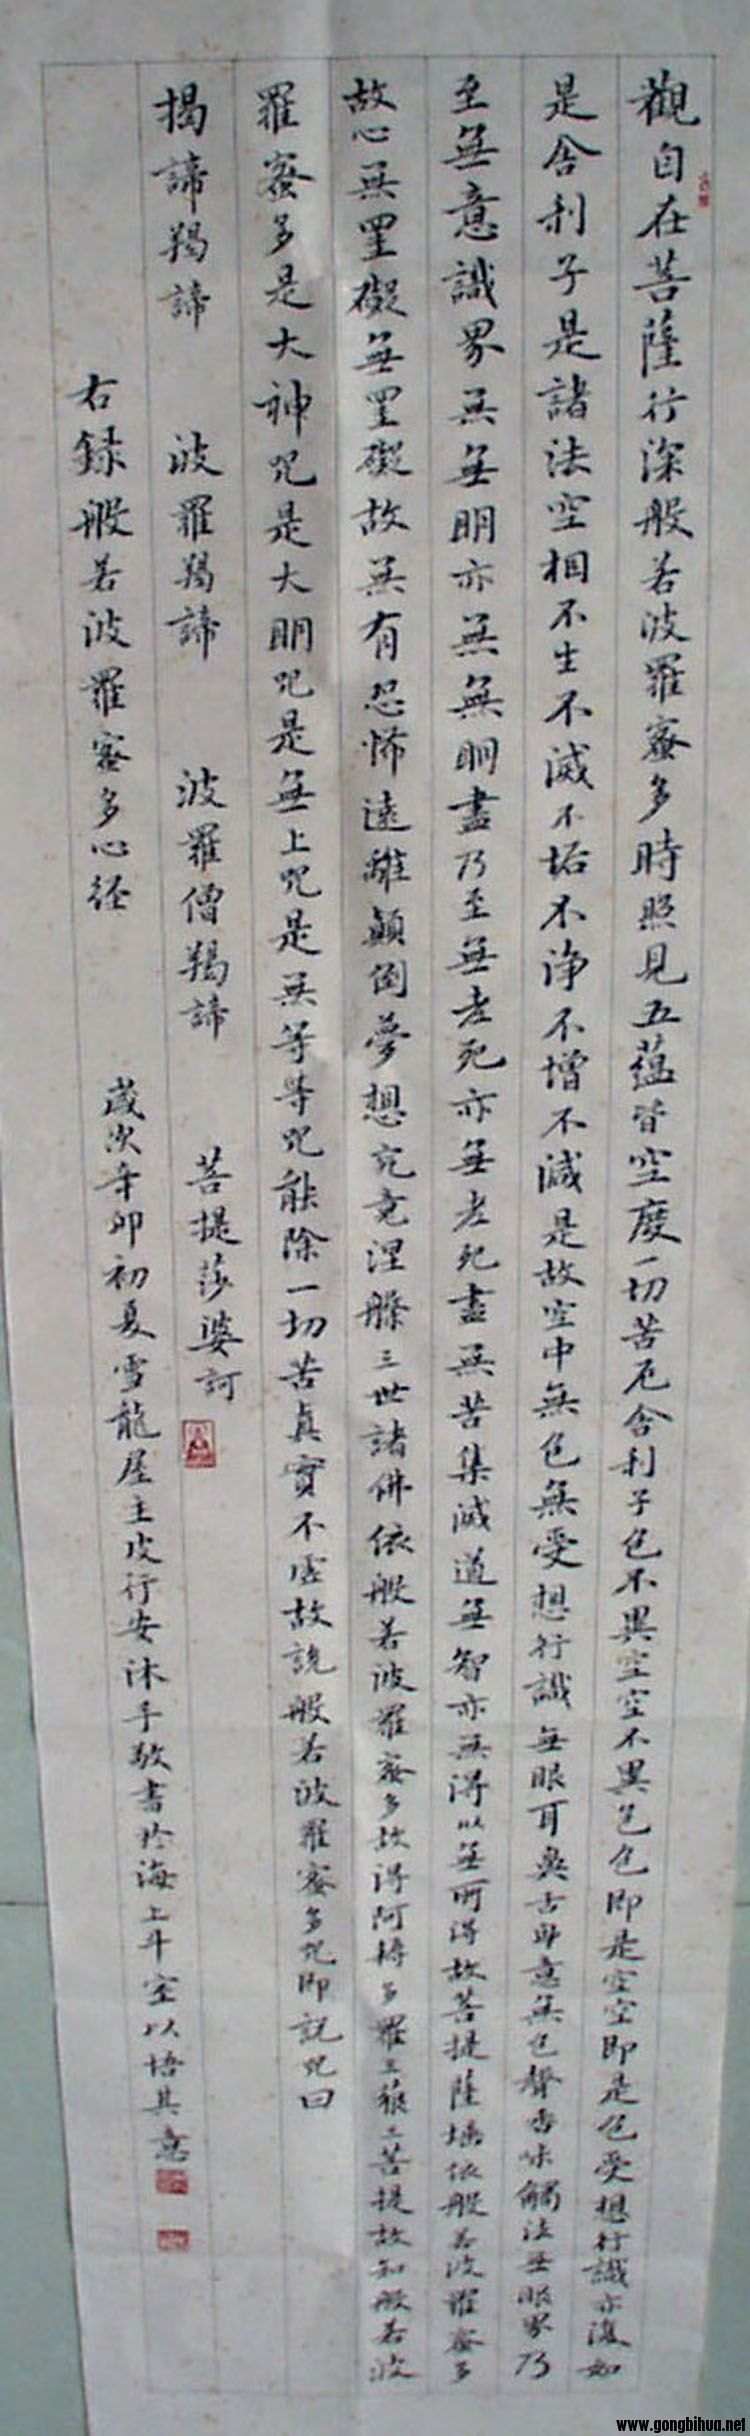 觀自在菩薩行深般若波羅蜜多時照見五蘊皆空度一切苦厄舍利子色不異空空不異色色即是空空即是色受想行識亦復如
是舍利子是諸法空相不生不滅不垢不净不增不減是故空中無色無受想行識無眼耳鼻舌身意無色聲香味觸法無眼界乃
至無意識界無無明亦無無明盡乃至無老死亦無老死盡無苦集滅道無智亦無得以無所得故菩提薩埵依般若波羅蜜多
故心無罣礙無罣礙故無有恐怖遠離顛倒夢想究竟涅槃三世諸佛依般若波羅蜜多故得阿耨多羅三藐三菩提故知般若波
羅蜜多是大神咒是大明咒是無上咒是無等等咒能除一切苦真實不虛故說般若波羅蜜多咒即説咒曰
揭諦羯諦 波羅羯諦 波羅僧羯諦 菩提莎婆訶
右録般若波羅蜜多心経
歲次辛卯初夏雪龍居主皮行安沐手敬書於海上斗室以悟其意
www.gongbihua.net